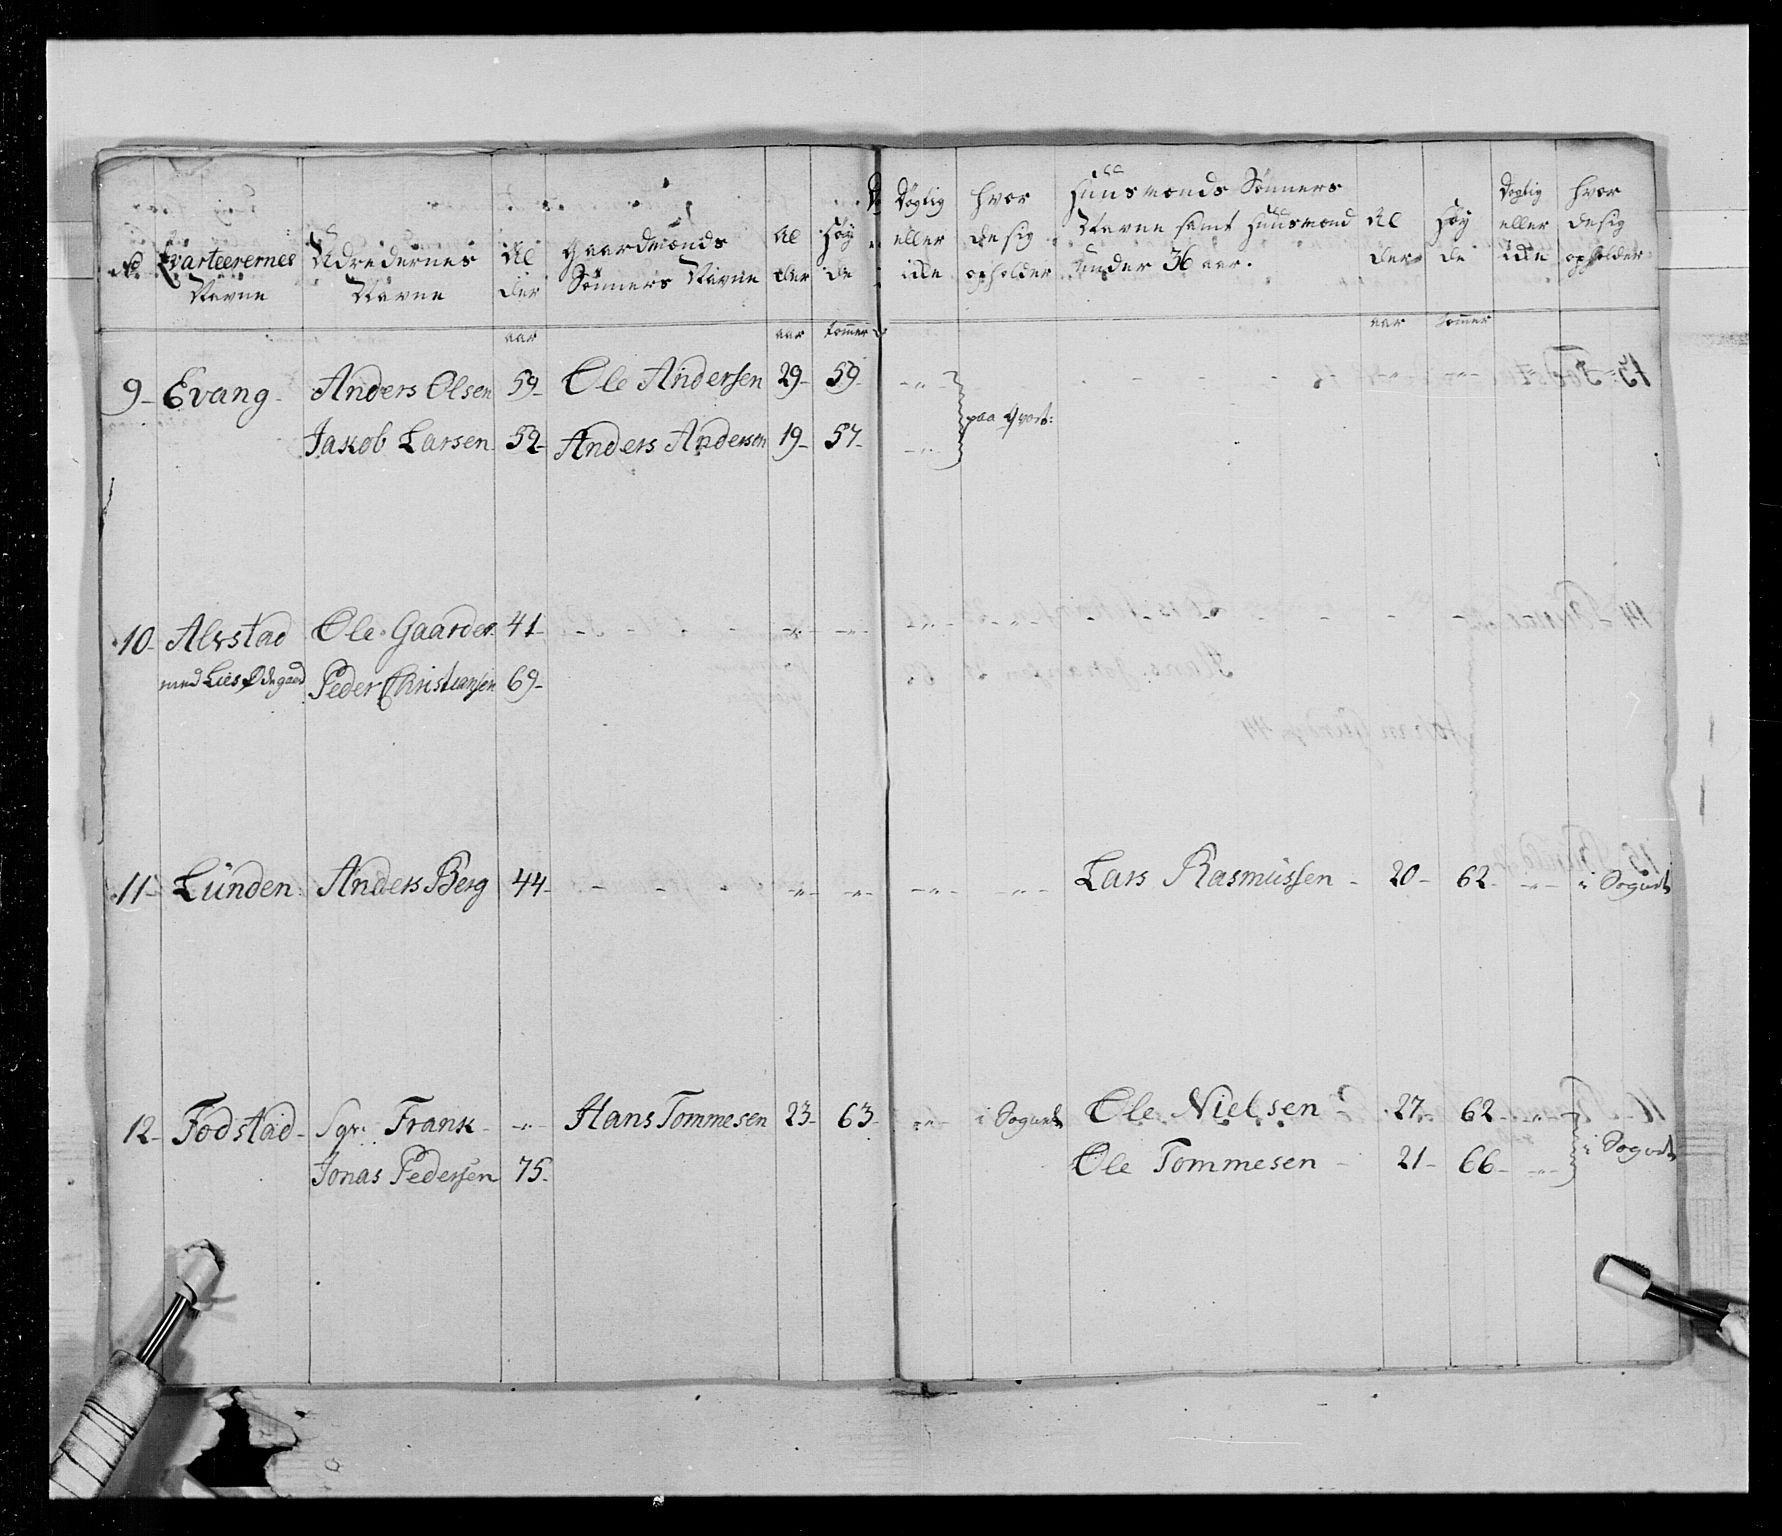 No
Qvarteerernes
Navne
Udredernes
Navne
Al
der
Gaardmænds
Sønners Navne
Al
der
Høy
de
Dygtig
eller
ikke
hvor
de sig
opholder
Huusmænds Sønners
Navne samt Huusmænd
under 36 aar.
Al
der
Høy
de
Dygtig
eller
ikke
hvor
de sig
opholder
aar aar tommer aar tommer
9- Evang- Anders Olsen 59- Ole Andersen 29- 59- -"-
Jakob Larsen 52- Anders Andersen 19- 57- -"- paa Qvart:
10- Alvstad Ole Gaarder 41- - - - - -"- -"- -"-
med Lies Ødegaard Peder Christiansen 69-
11- Lunden: Anders Berg 44- - - - -"- -"- -"- -"- Lars Rasmussen - 20- 62- -"- i Sognet
12- Fodstad- Sgr: Frank- -"- Hans Tommesen 23- 63- -"- i Sognet Ole Nielsen - 27- 62- -"-
Jonas Pedersen 75- Ole Tommesen - 21- 66- -"- i Sognet